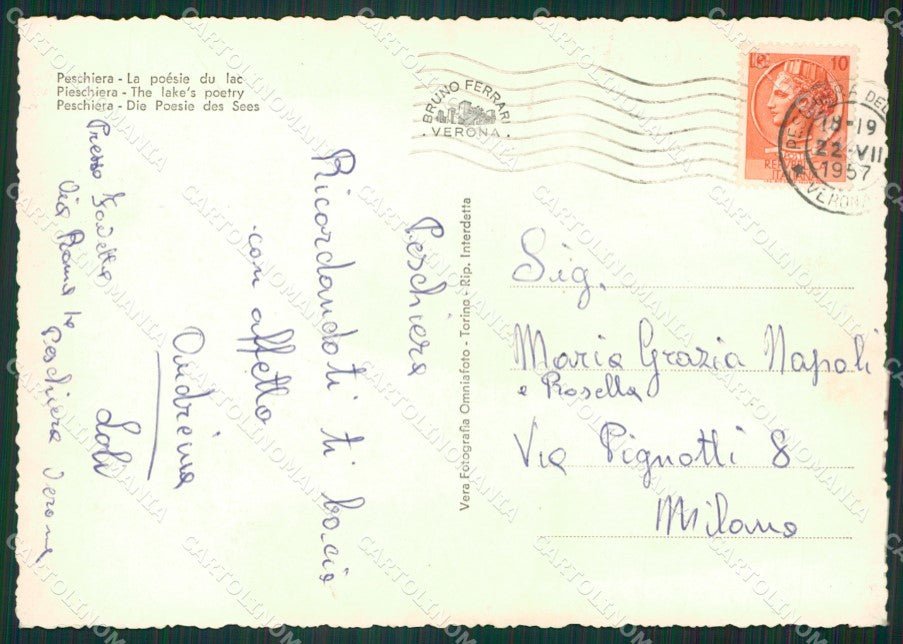 Peschiera - La poésie du lac
Pieschiera - The lake's poetry
Peschiera - Die Poesie des Sees
BRUNO FERRARI
VERONA
10
REP
ITALIANA
18-19
22 VII
1957
VERONA
Peschiera
Ricordandoti ti bacio
con affetto
Andreina
Presso
Via Roma
Peschiera Verona
Vera Fotografia Omniafoto - Torino - Rip. Interdetta
Sig.
Maria Grazia Napoli
e Rosella
Via Pignotti 8
Milano
CARTOLINOMANIA